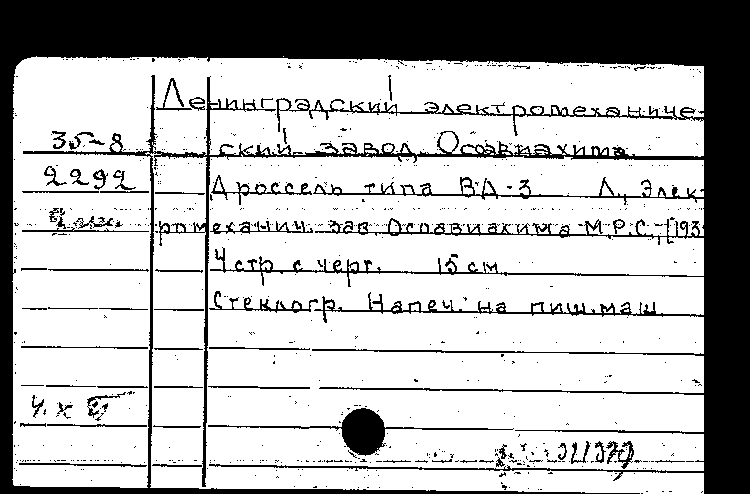 Ленинградский электромеханиче-
35-8 ский завод Осоавиахима.
2292 Дроссель типа ВД-3. Л., Элект
ромеханич. зав. Осоавиахима М.Р.С., [193
4 стр. с черт. 15 см.
Стеклогр. Напеч. на пиш. маш.